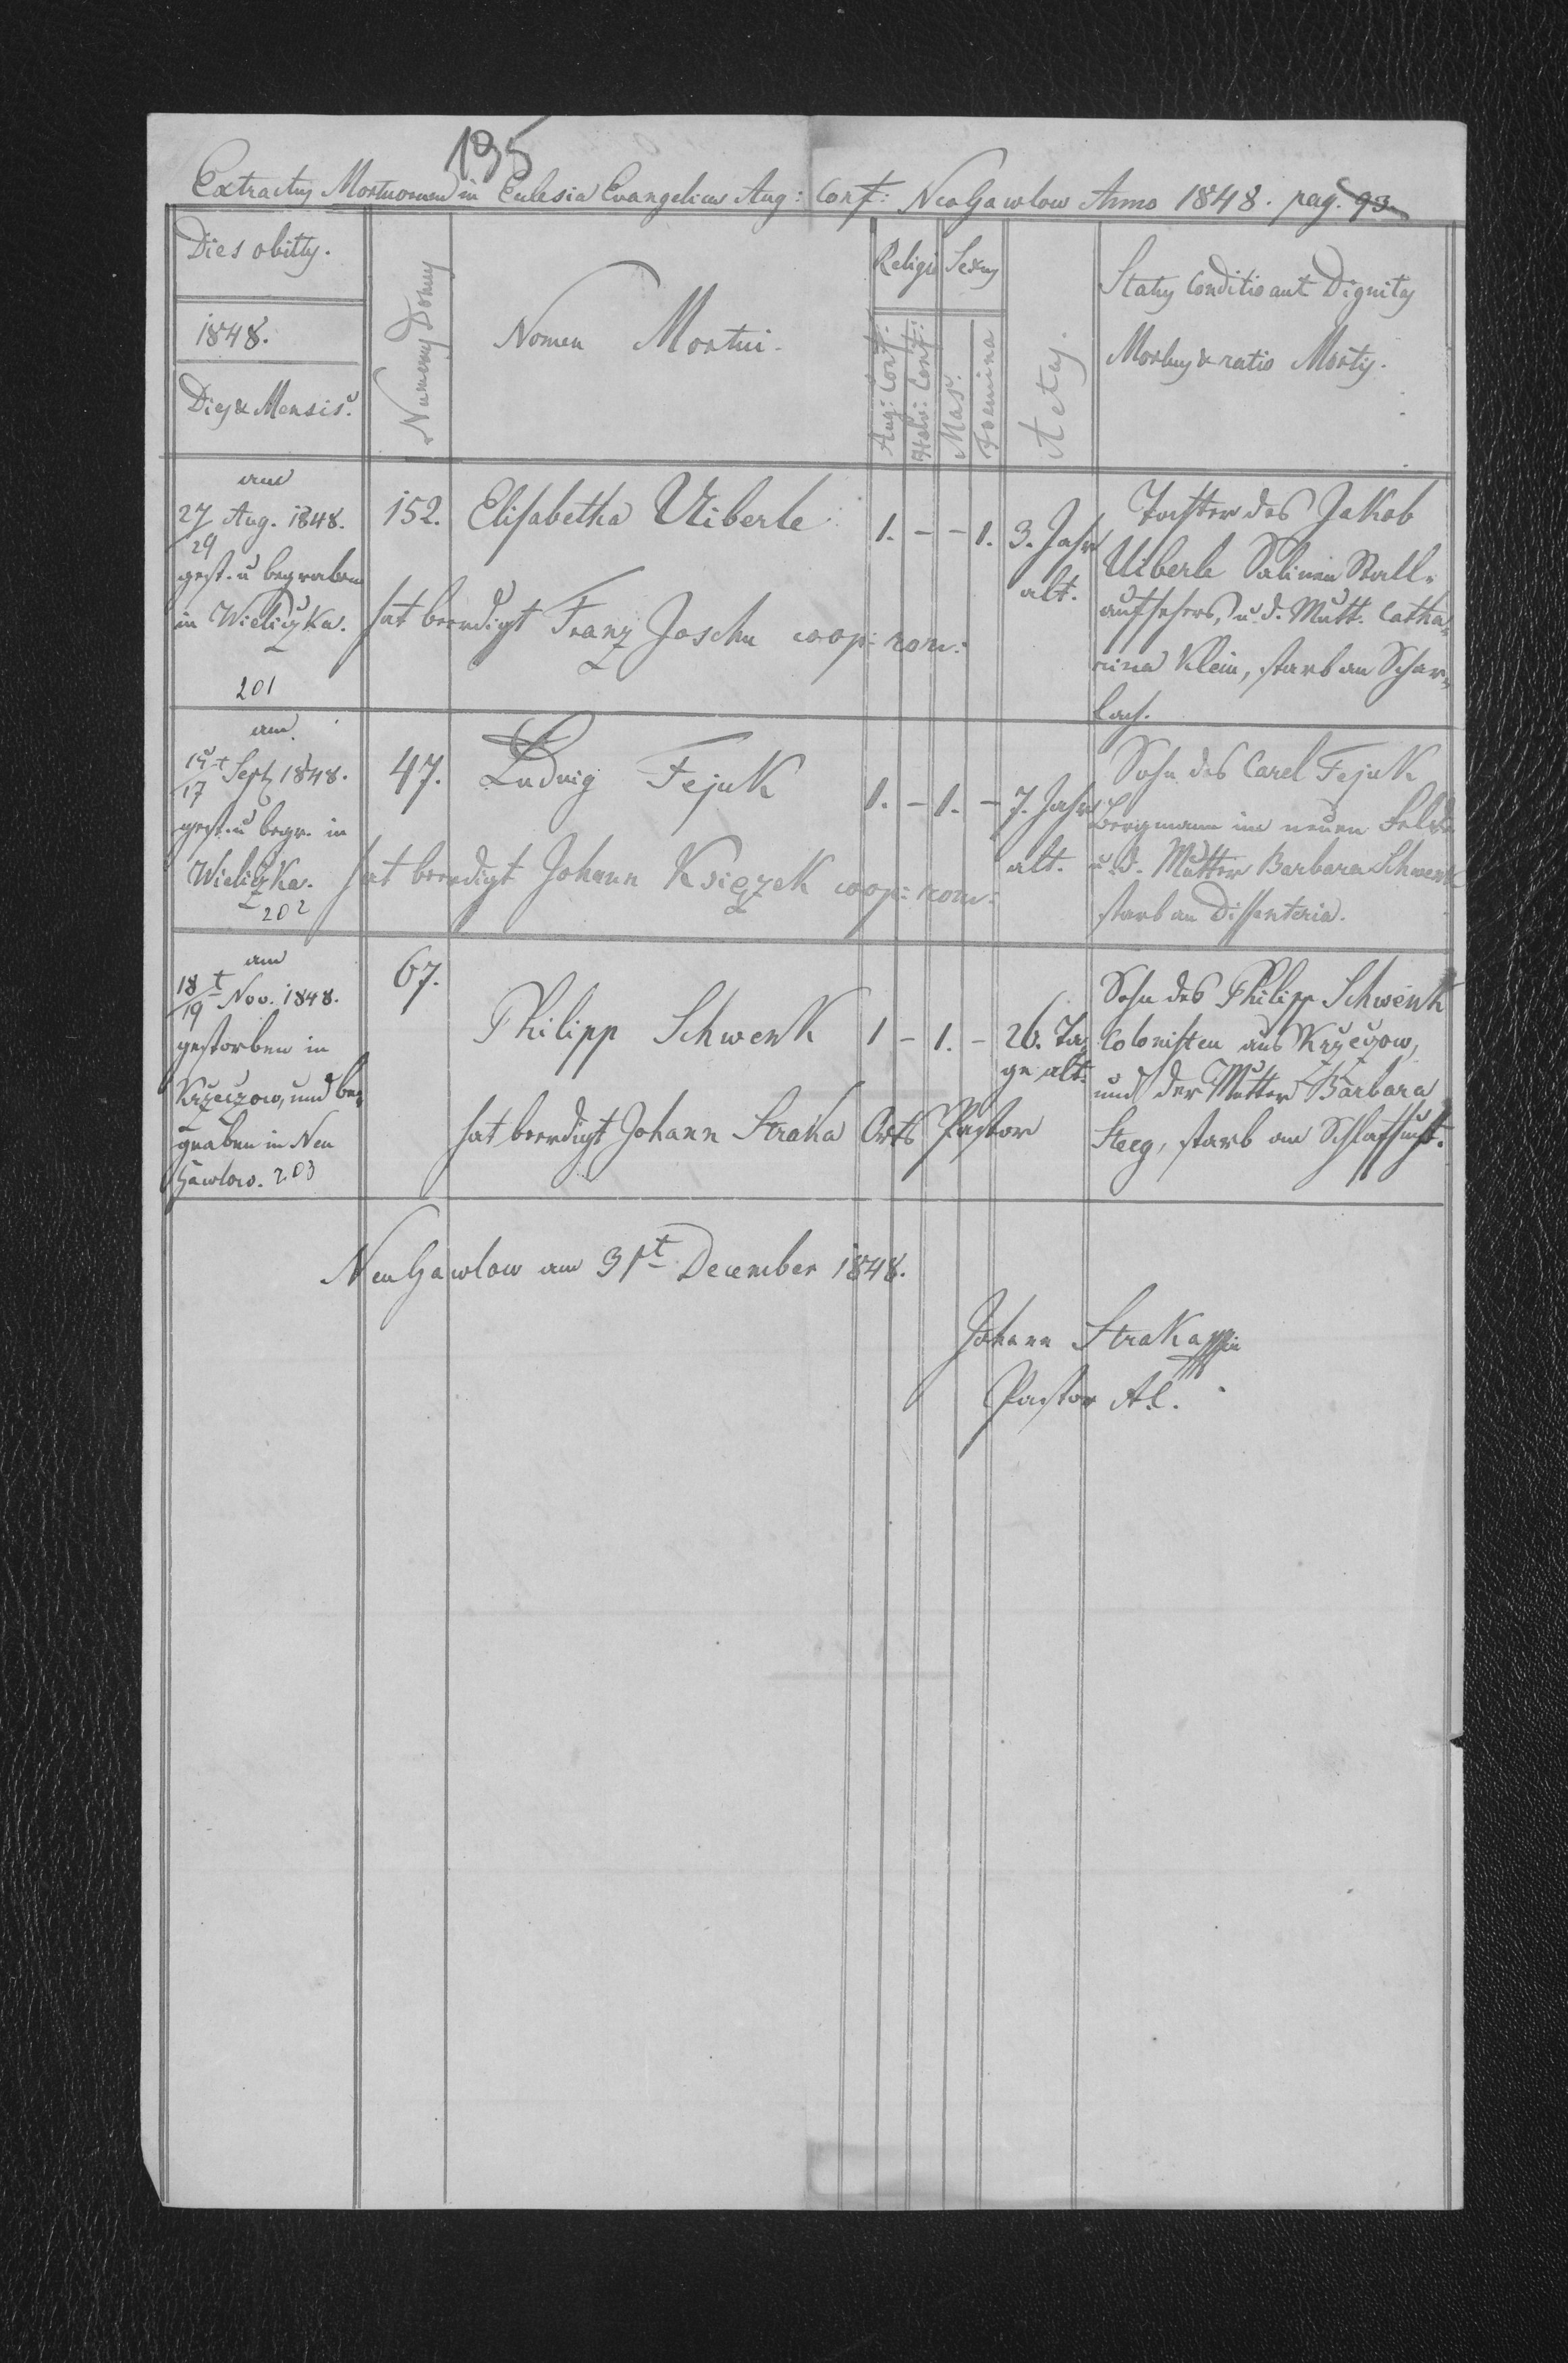 195
Extractus Mortuorum in Eclesia Evangelica Aug: Conf: NeoGawlow Anno 1848. pag. 93
Dies obitus.
1848.
Dies & Mensis.
Numerus Domus
Nomen Mortui.
Religio
Aug: Conf:
Helv: Conf:
Sexus
Mas.
Foemina
Aetas.
Status Conditio aut Dignitas
Morbus & ratio Mortis.
am
27/29 Aug. 1848.
gest. u begraben
in Wieliczka.
201
152.
Elisabetha Uiberle
hat beerdigt Franz Joschu coop: rom:
1. - - 1.
3. Jahr
alt.
Tochter des Jakob
Uiberle Salinen Stall-
aufsehers, u. d. Mutt. Catha-
rina Klein, starb an Schar-
lach.
am
15t/17 Sept 1848.
gest. u begr. in
Wieliczka.
202
47.
Ludwig Fejuk
hat beerdigt Johann Książek coop: rom:
1. - 1. -
7. Jahr
alt.
Sohn des Carel Fejuk
Bergmann im neuen Felde
u. d. Mutter Barbara Schwenk
starb an Dissenteria.
am
18t/19 Nov. 1848.
gestorben in
Krzeczow, und be-
graben in Neu
Gawlow. 203
67.
Philipp Schwenk
hat beerdigt Johann Straka Orts Pastor
1 - 1. -
26. Ta-
ge alt.
Sohn des Philipp Schwenk
Colonisten aus Krzeczow,
und der Mutter Barbara
Steeg, starb an Schlafsucht.
NeuGawlow am 31t December 1848.
Johann Straka
Pastor A.C.